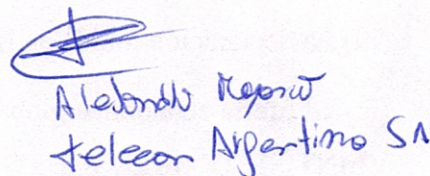 Alejandro
Telecom Argentina SA